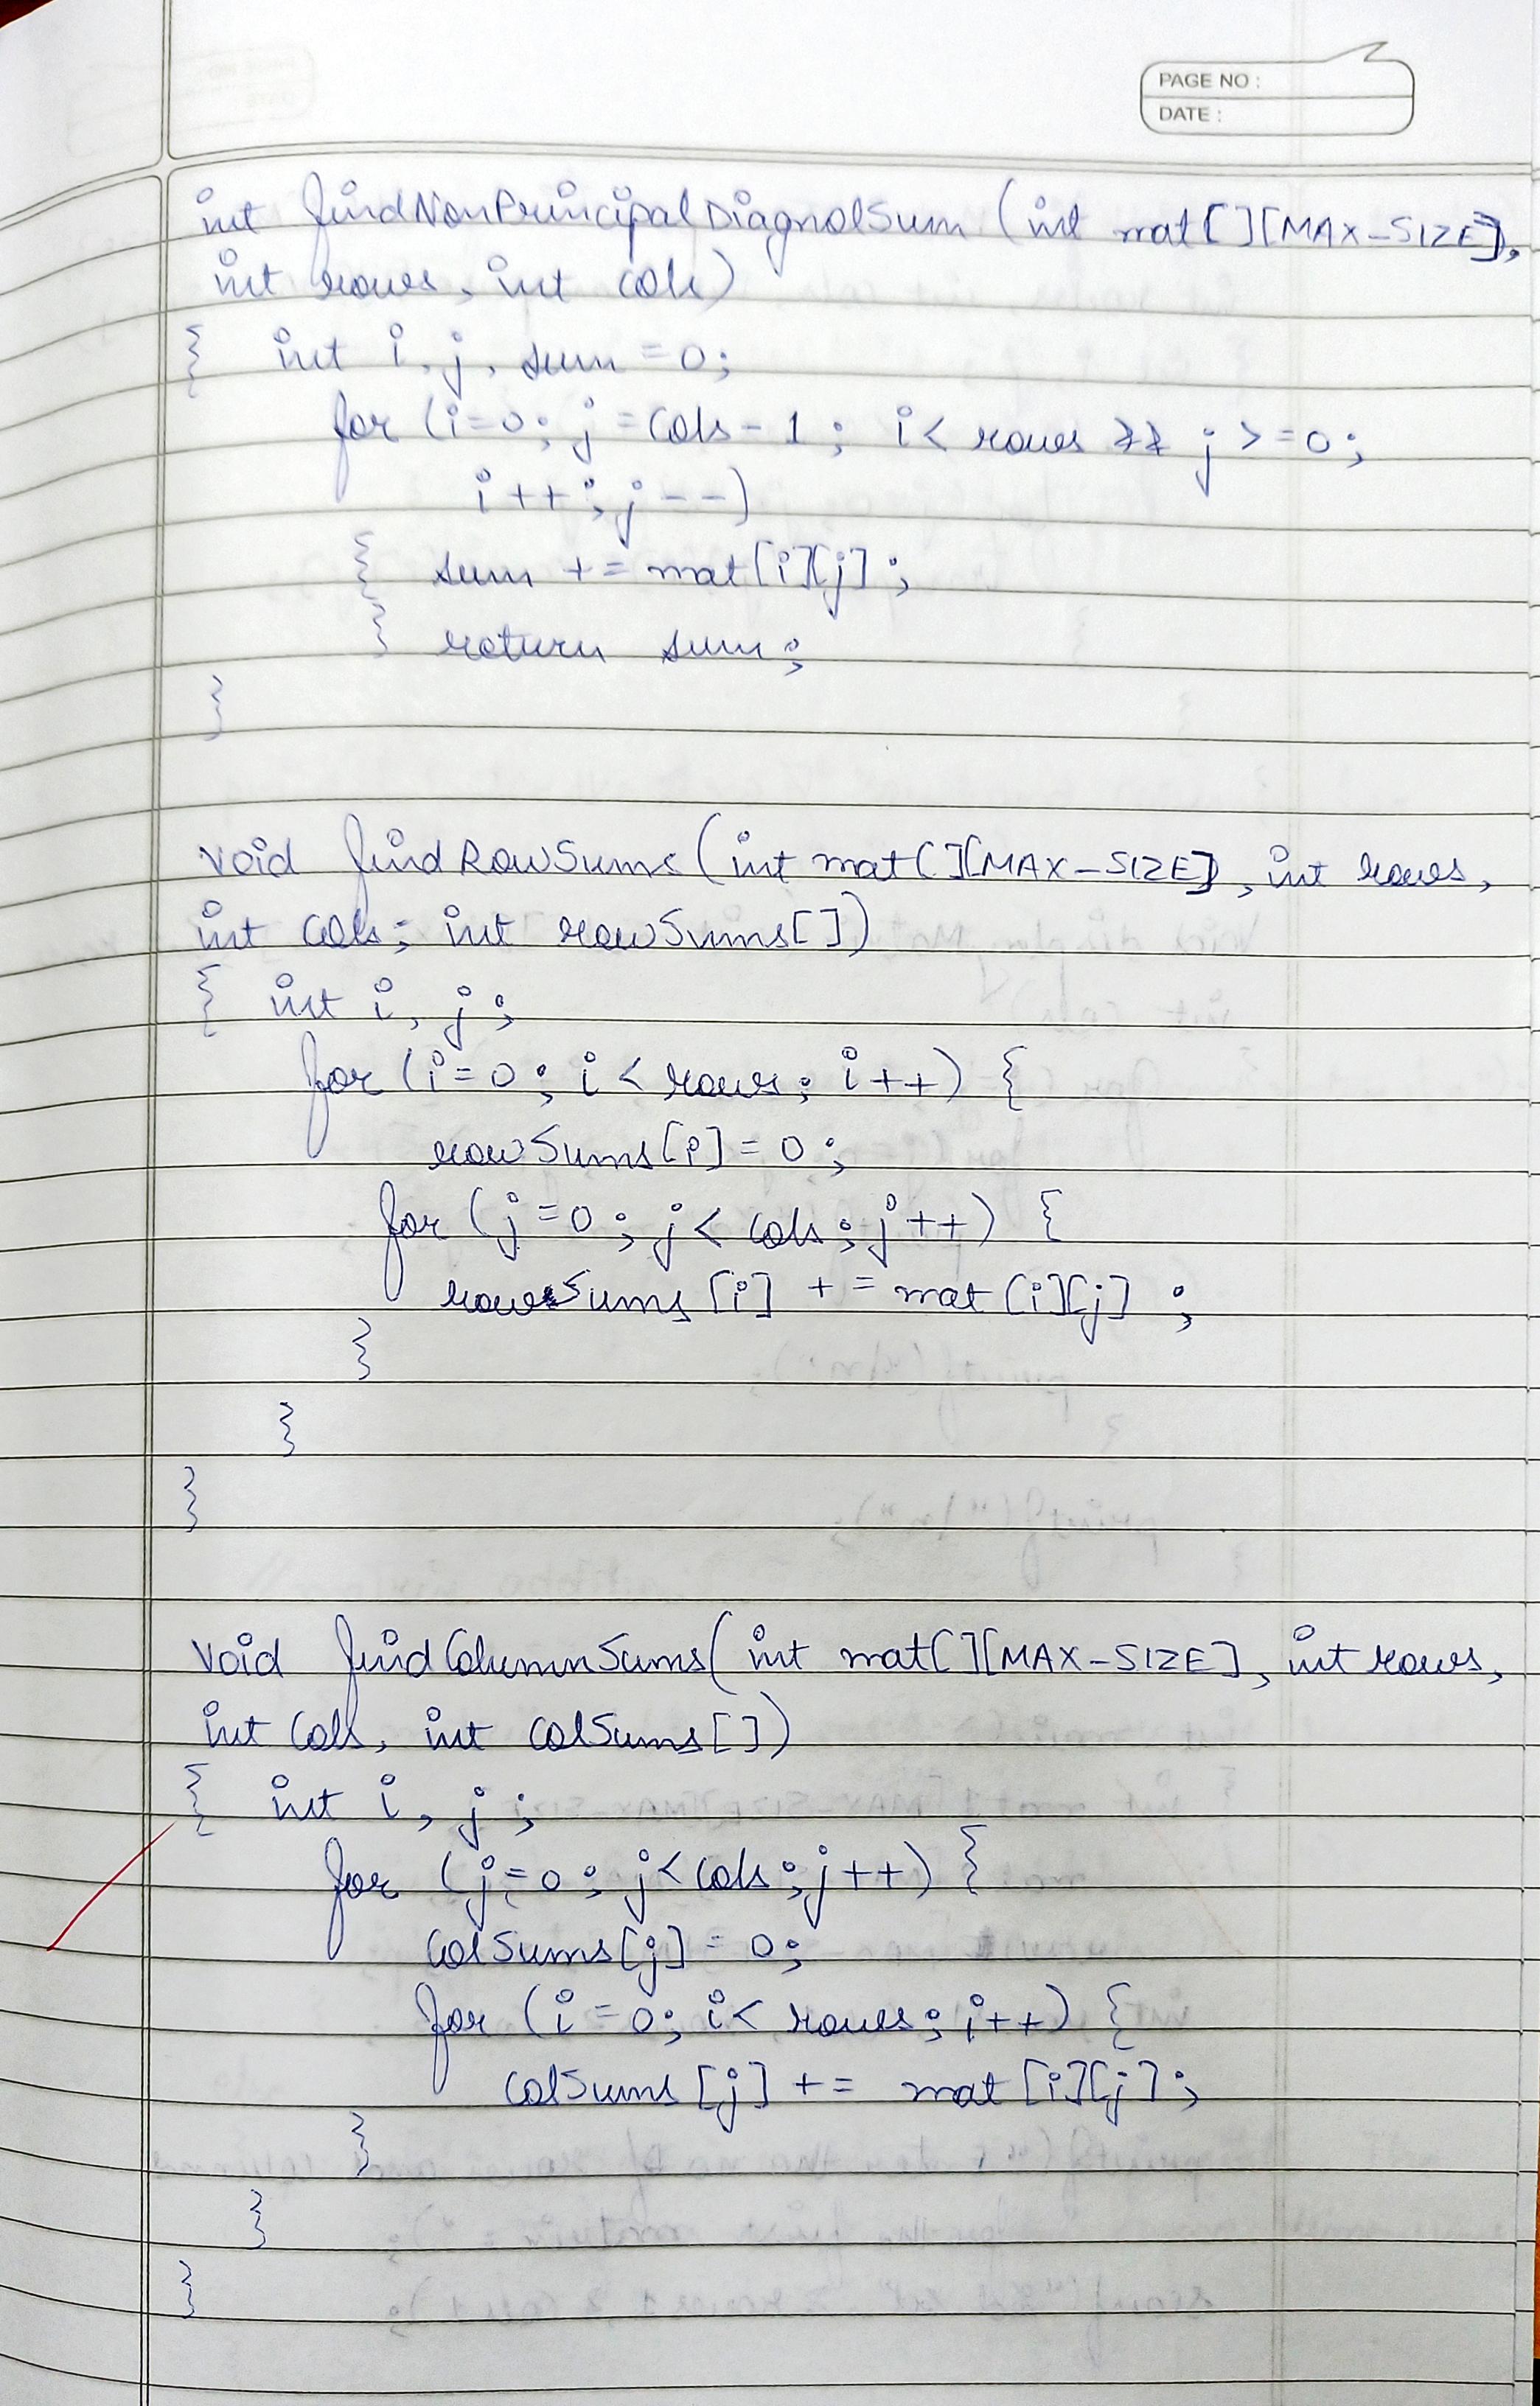 PAGE NO :
DATE :
int findNonPrincipalDiagnolSum (int mat[][MAX-SIZE],
int rows, int cols)
{ int i, j, sum = 0;
for (i=0; j = cols - 1 ; i < rows && j >= 0 ;
i++ ; j--)
{ sum += mat[i][j] ;
} return sum ;
}
void findRowSums (int mat[][MAX-SIZE], int rows,
int cols; int rowSums[])
{ int i, j ;
for (i=0 ; i < rows ; i++) {
rowSums[i] = 0 ;
for (j=0 ; j < cols ; j++) {
rowSums [i] += mat [i][j] ;
}
}
}
void findColumnSums( int mat[][MAX-SIZE], int rows,
int cols, int colSums[])
{ int i, j ;
for (j=0 ; j<cols ; j++) {
colSums[j] = 0 ;
for (i = 0; i < rows ; i++) {
colSums [j] += mat [i][j] ;
}
}
}